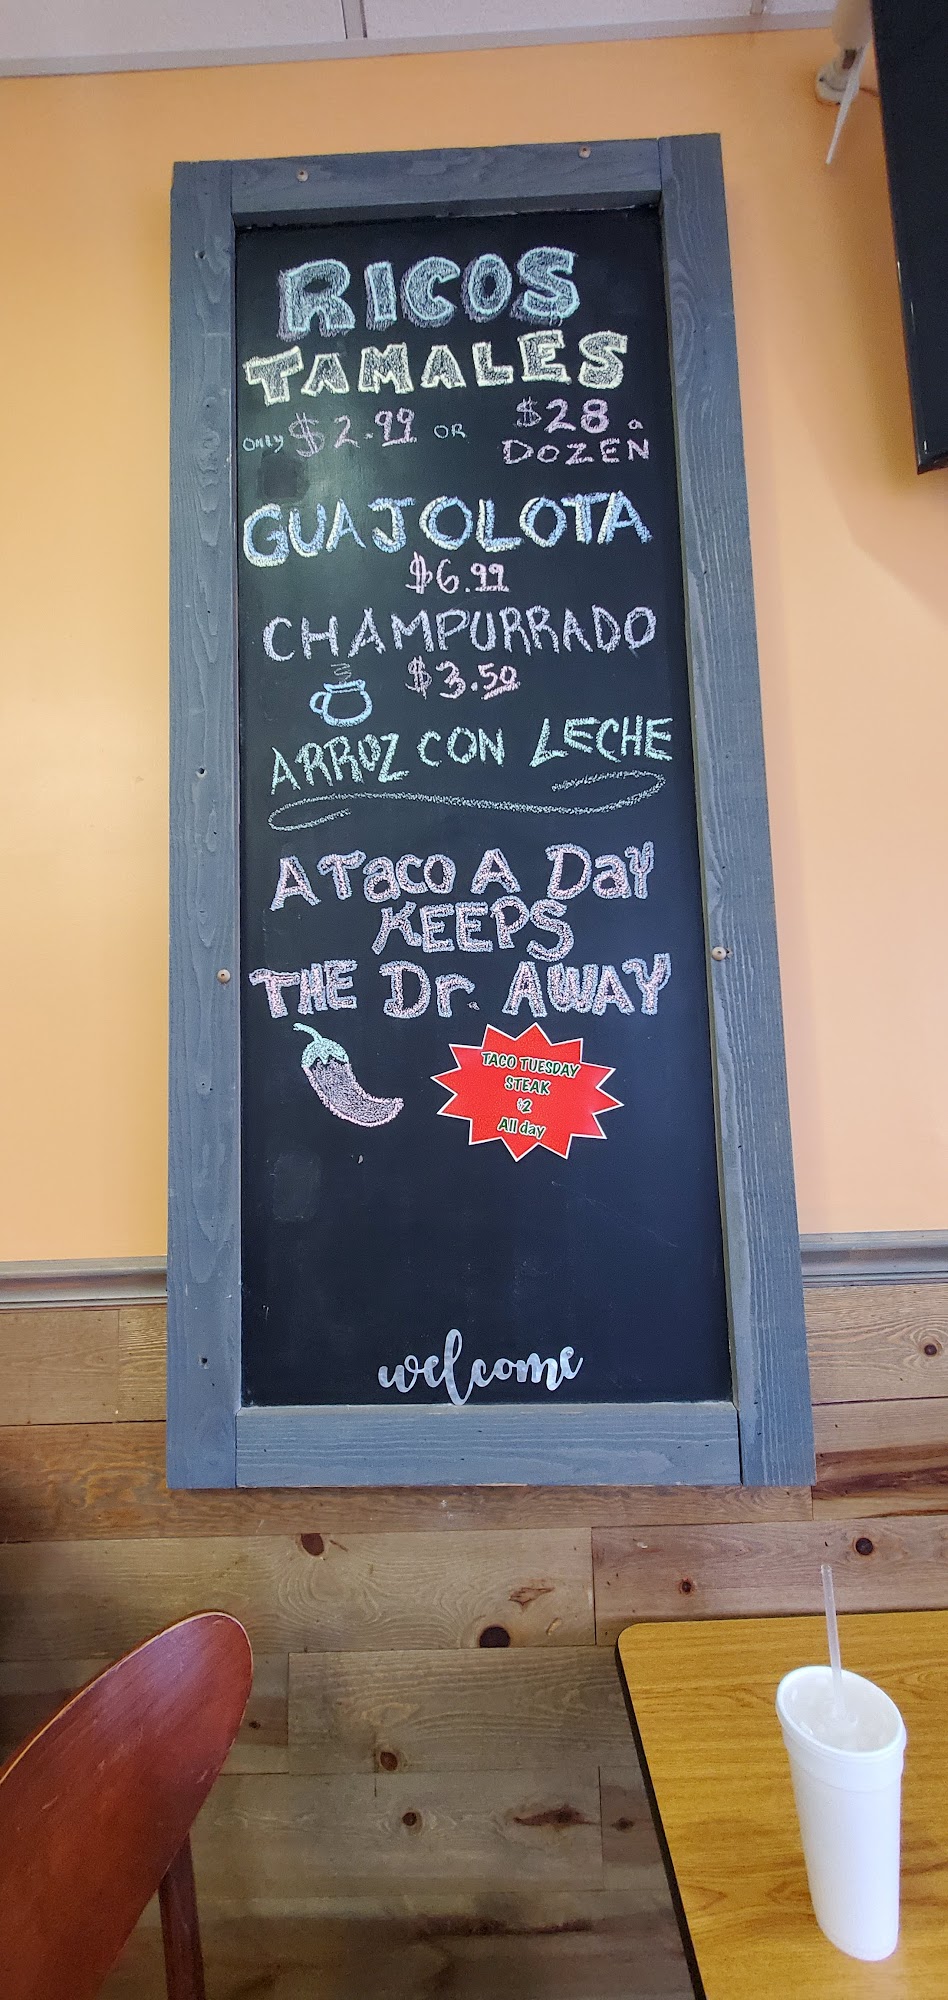 RICOS
TAMALES
ONLY $2.99 OR $28 a
DOZEN
GUAJOLOTA
$6.99
CHAMPURRADO
$3.50
ARROZ CON LECHE
A Taco A Day
KEEPS
THE Dr. AWAY
TACO TUESDAY
STEAK
$2
All day
welcome